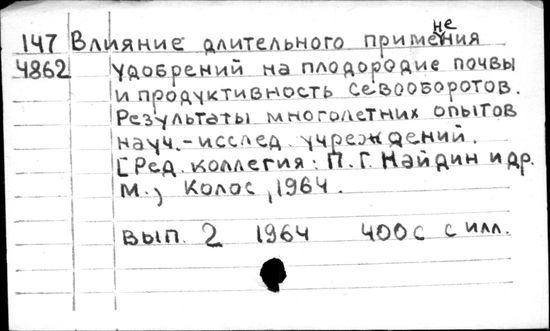 147 Влияние длительного применения
4862 удобрений на плодородие почвы
и продуктивность севооборотов.
Результаты многолетних опытов
науч.-исслед. учреждений.
[Ред. коллегия: П.Г. Найдин и др.
М., Колос, 1964.
Вып. 2 1964 400с с илл.